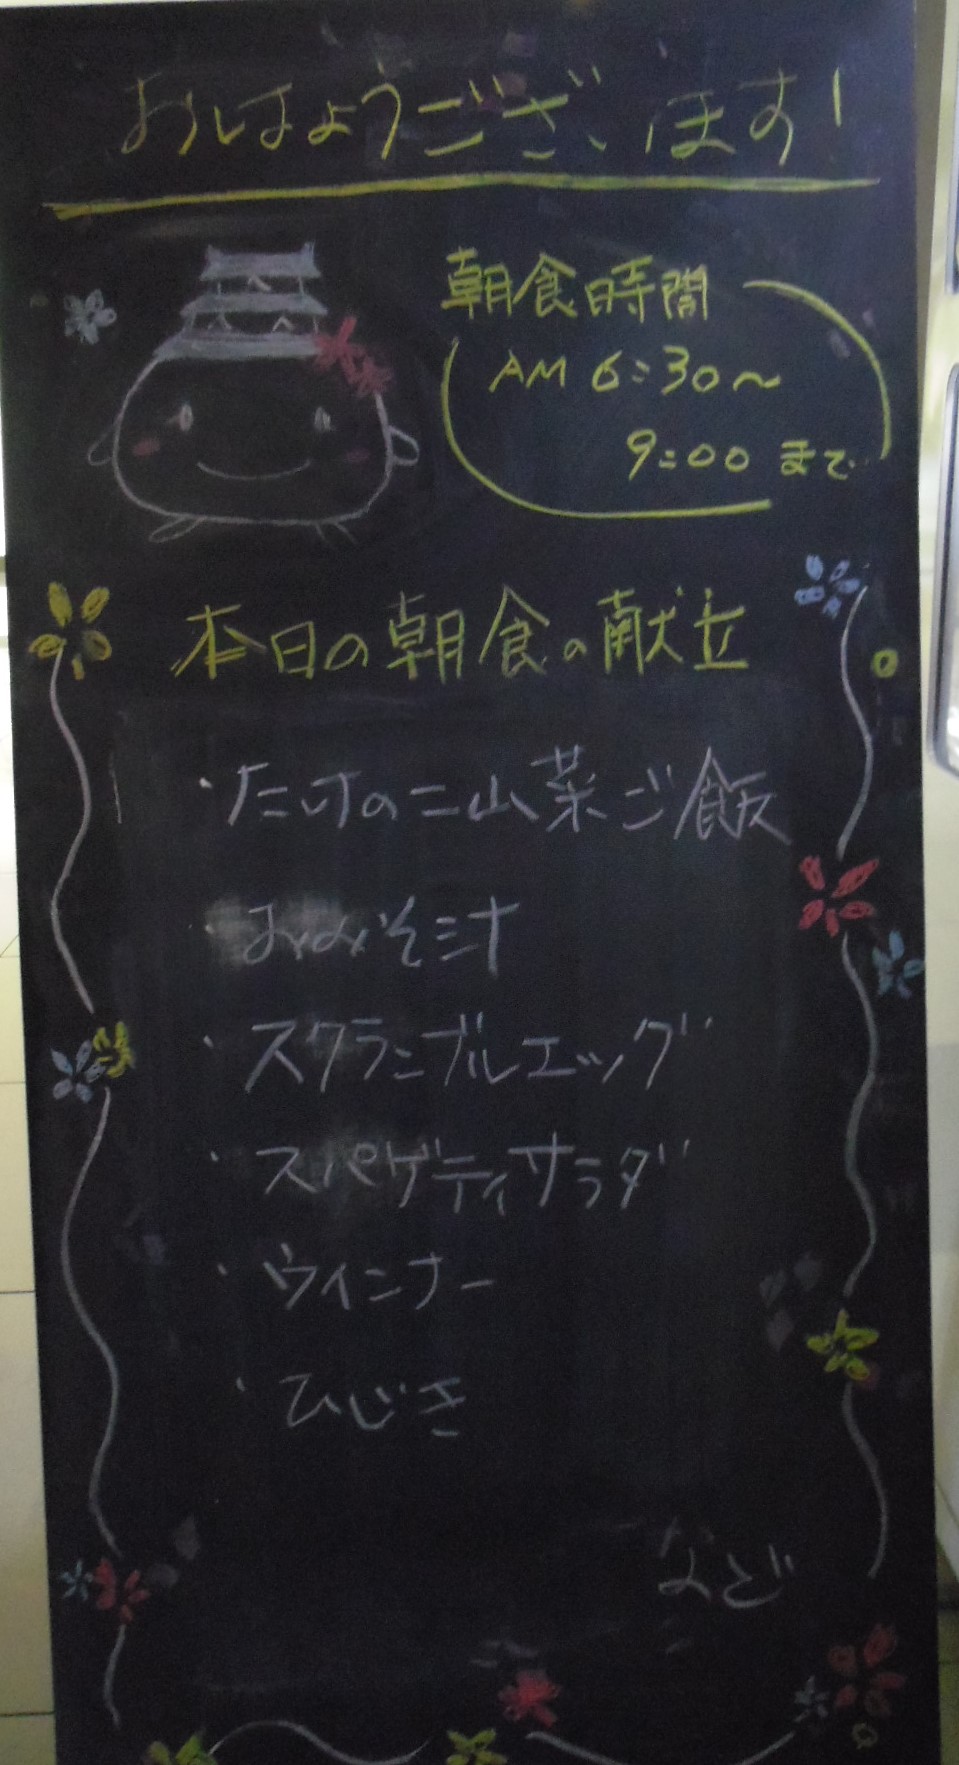 おはようございます!
朝食時間
AM 6:30〜
9:00 まで
本日の朝食の献立
・たけのこ山菜ご飯
・おみそ汁
・スクランブルエッグ
・スパゲティサラダ
・ウインナー
・ひじき
など